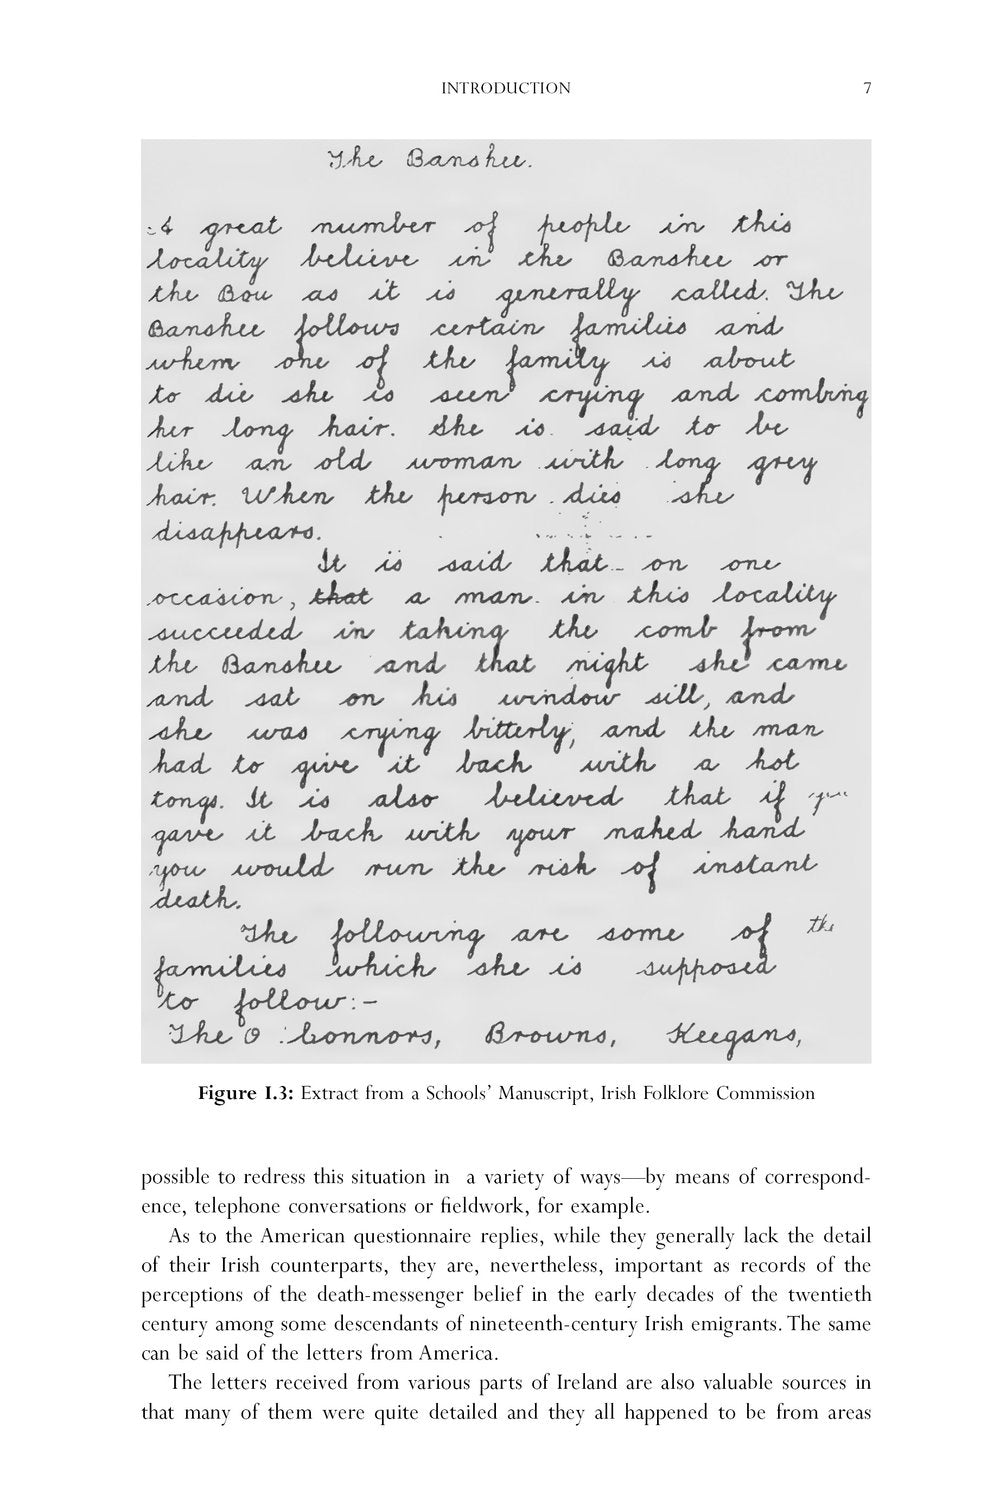 INTRODUCTION 7
The Banshee.
A great number of people in this
locality believe in the Banshee or
the Bou as it is generally called. The
Banshee follows certain families and
when one of the family is about
to die she is seen crying and combing
her long hair. She is said to be
like an old woman with long grey
hair. When the person dies she
disappears.
It is said that on one
occasion, that a man in this locality
succeeded in taking the comb from
the Banshee and that night she came
and sat on his window sill, and
she was crying bitterly, and the man
had to give it back with a hot
tongs. It is also believed that if you
gave it back with your naked hand
you would run the risk of instant
death.
The following are some of the
families which she is supposed
to follow:-
The O'Connors, Browns, Keegans,
Figure I.3: Extract from a Schools’ Manuscript, Irish Folklore Commission
possible to redress this situation in a variety of ways—by means of correspond-
ence, telephone conversations or fieldwork, for example.
As to the American questionnaire replies, while they generally lack the detail
of their Irish counterparts, they are, nevertheless, important as records of the
perceptions of the death-messenger belief in the early decades of the twentieth
century among some descendants of nineteenth-century Irish emigrants. The same
can be said of the letters from America.
The letters received from various parts of Ireland are also valuable sources in
that many of them were quite detailed and they all happened to be from areas